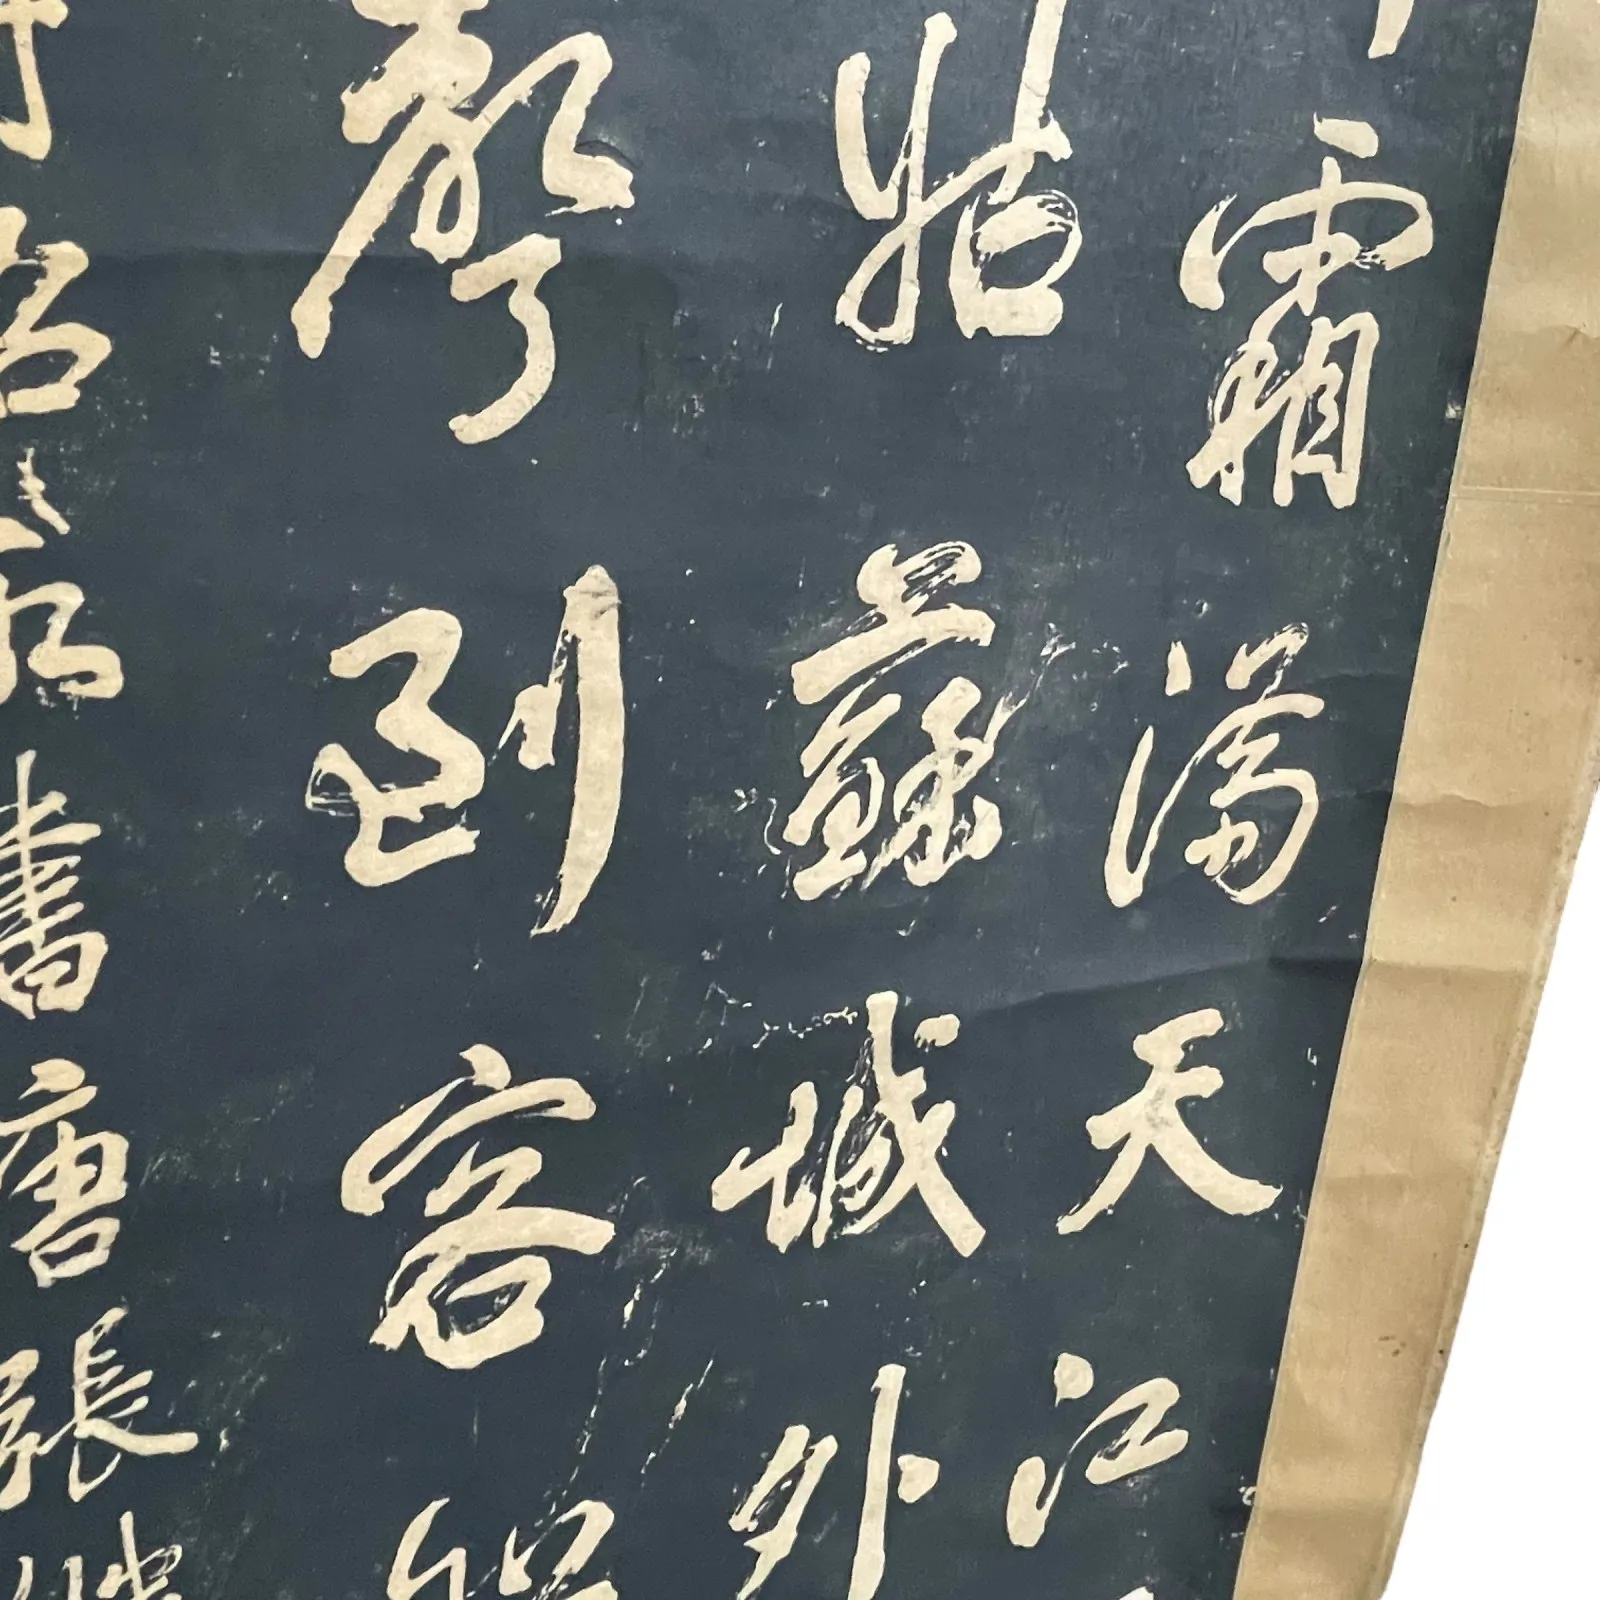 霜滿天江
姑蘇城外
聲到客船
詔所書唐張繼